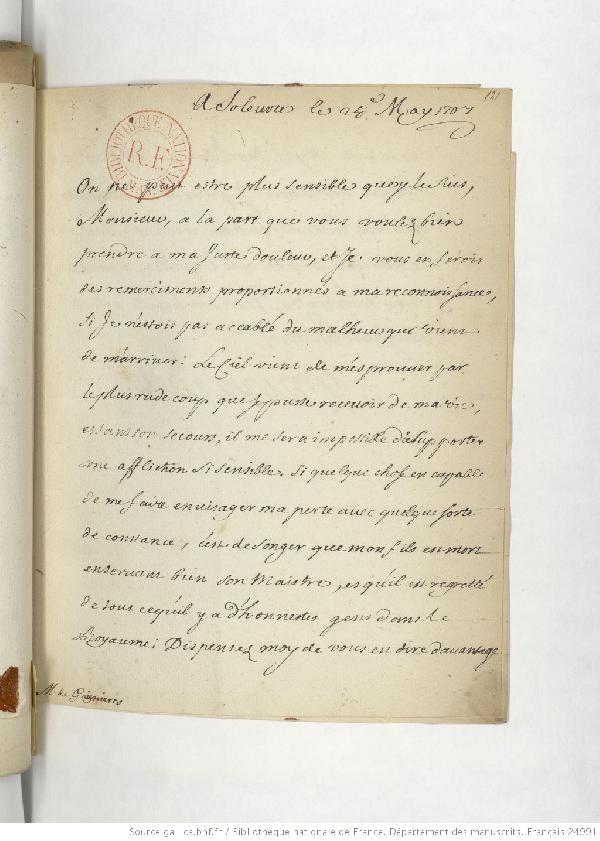 121
A Soleurre le 28e. May 1707
BIBLIOTHEQUE NATIONALE
R.F.
On ne peut estre plus sensible que je le suis,
Monsieur, a la part que vous voulez bien
prendre a ma juste douleur, et Je vous en ferois
des remerciments proportionnés a ma reconnoissance,
si Je n'estois pas accablé du malheur qui vient
de m'arriver. Le Ciel vient de m'esprouver par
le plus rude coup que je pusse recevoir de ma vie,
et sans son secours, il me sera impossible de supporter
une affliction si sensible. Si quelque chose est capable
de me faire envisager ma perte avec quelque sorte
de constance, c'est de songer que mon fils est mort
en servant bien son Maistre, et qu'il est regretté
de tous ce qu'il y a d'honnestes gens dans le
Royaume. Dispensez moy de vous en dire davantage
M. de Gaignieres
Source gallica.bnf.fr / Bibliothèque nationale de France. Département des manuscrits. Français 24991